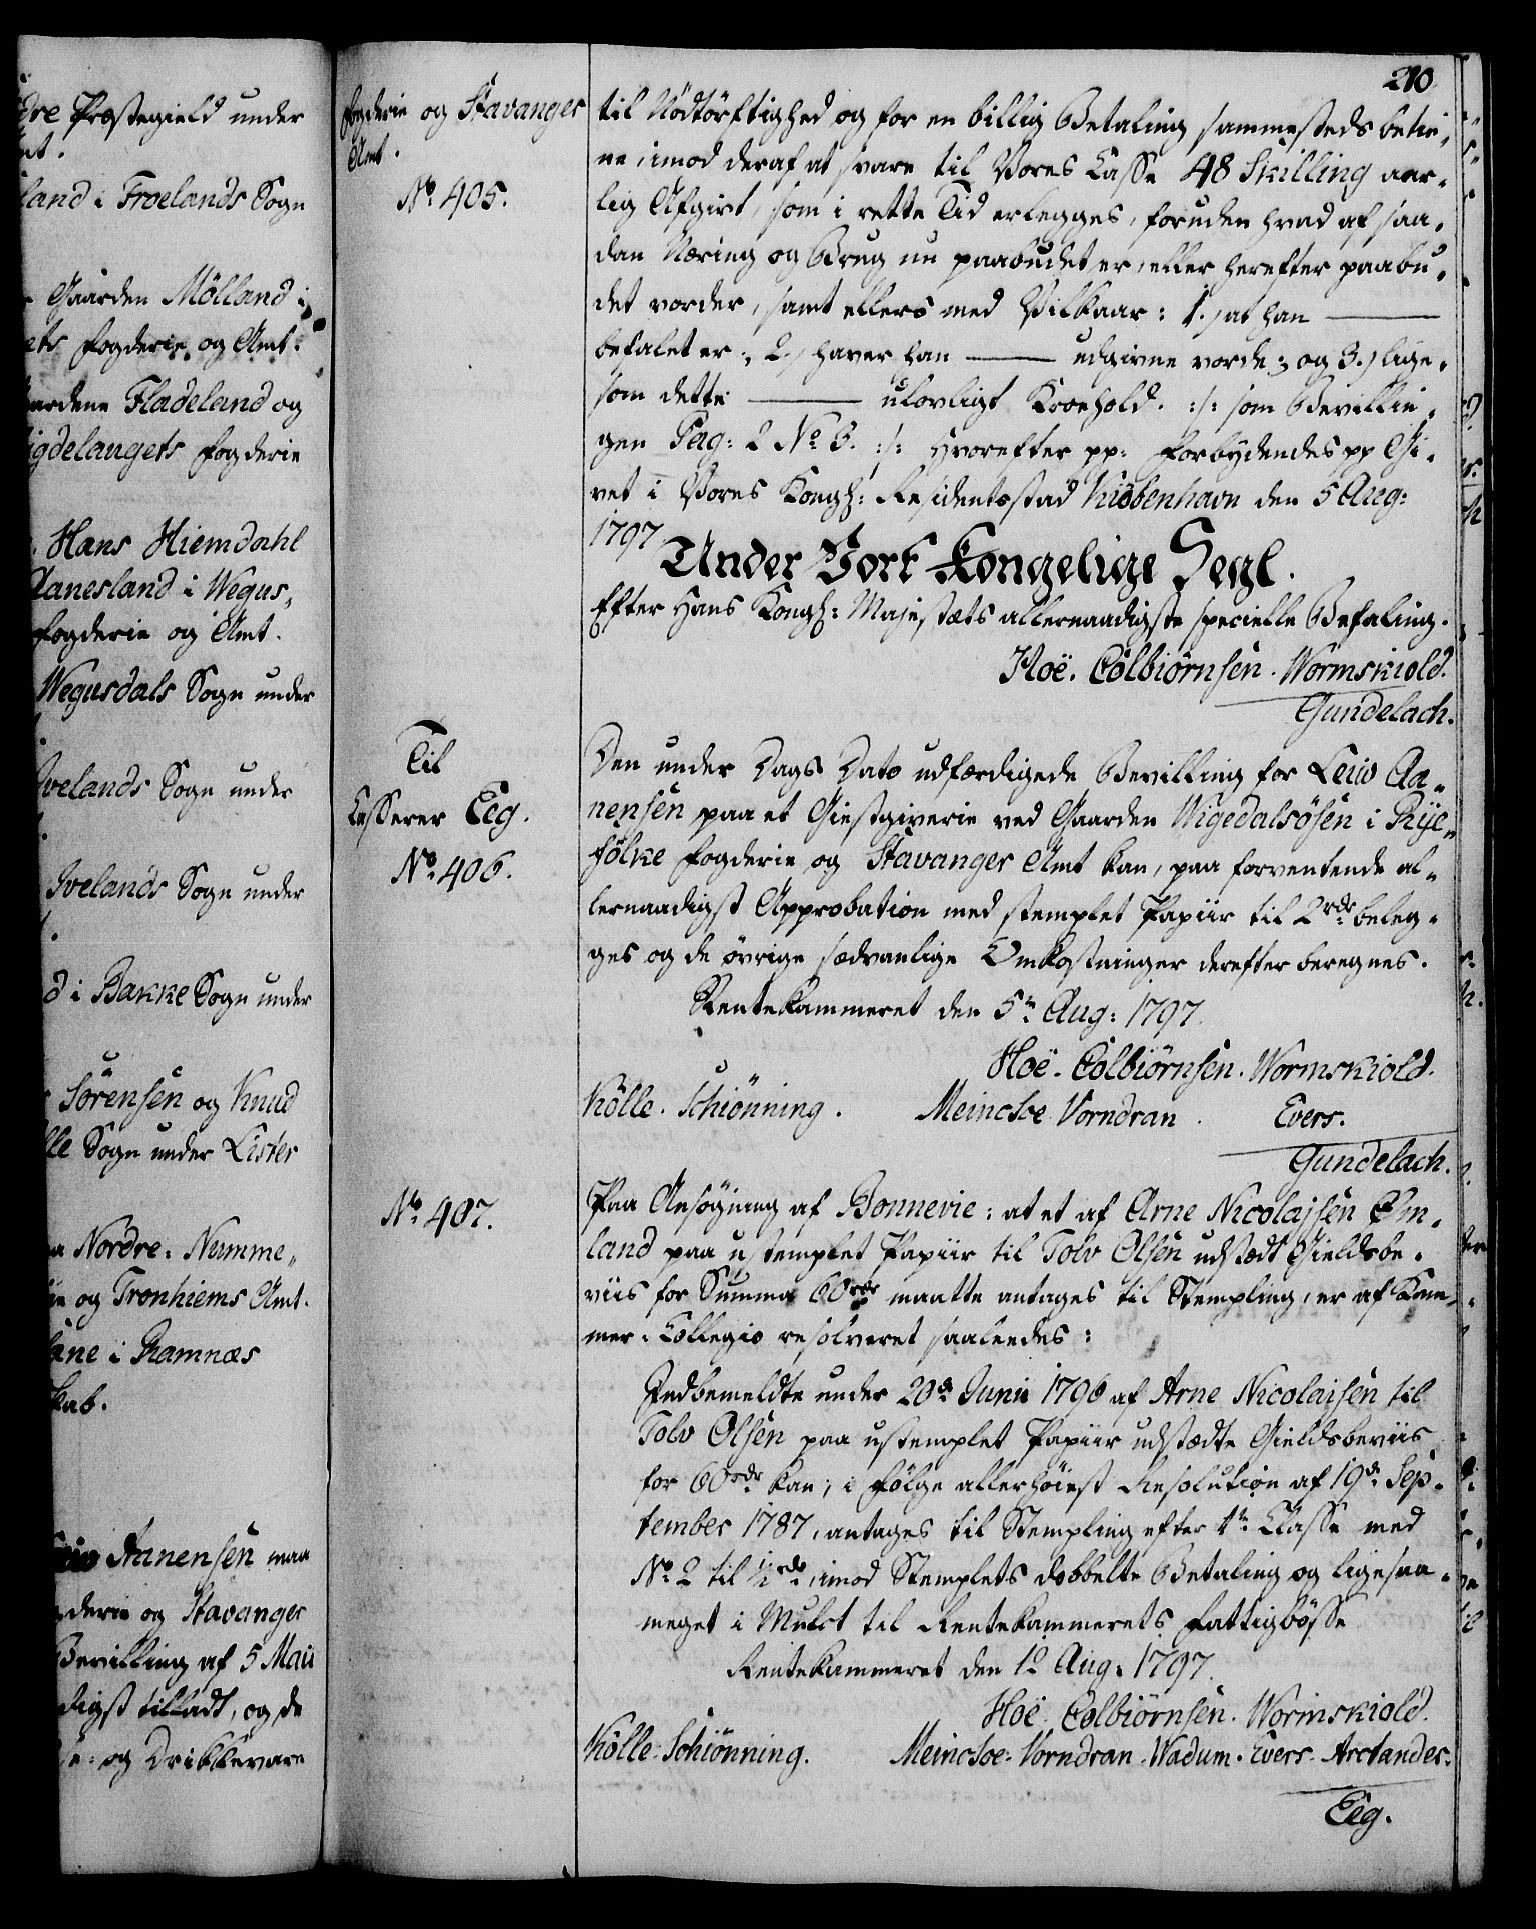 210
dre Præstegield under
mt.
land i Froelands Sogn
Gaarden Mölland i
ets Fogderie og Amt.
aardene Fladeland og
igdelaugets Fogderie
Hans Hiemdahl
lanesland i Wegus„
Fogderie og Amt.
Wegusdals Sogn under
Ivelands Sogn under
Ivelands Sogn under
d i Bakke Sogn under
Sörensen og Knud
lle Sogn under Lister
a Nordre: Numme„
ie og Tronhiems Amt.
ane i Ramnæs
skab.
Aanensen maa
gderie og Stavanger
Bevilling af 5 Maii
digst tilladt, og de
e: og Drikkevare
Fogderie og Stavanger
Amt.
No 405.
til Nödtörftighed og for en billig Betaling sammesteds betie„
ne, imod deraf at svare til Vores Casse 48 Skilling aar„
lig Afgivt, som i rette Tid erlegges, foruden hvad af saa„
dan Næring og Brug nu paabudet er, eller herefter paabu„
det vorder, samt ellers med Vilkaar: 1.) at han ———
befalet er; 2.) haver han ——— udgivne vorde; og 3.) lige„
som dette ——— ulovligt Kroehold. :/: som Bevillin„
gen Pag: 2 No 3. :/: Hvorefter pp: Forbydendes pp Gi„
vet i Vores Kongl: Residentsstad Kiöbenhavn den 5 Aug:
1797
Under Vort Kongelige Segl.
Efter Hans Kongl: Majestæts allernaadigste specielle Befaling.
Hoë. Colbiörnsen. Wormskiold.
Gundelach.
Til
Casserer Eeg.
No 406.
Den under Dags Dato udfærdigede Bevilling for Leiv Aa„
nensen paa et Giestgiverie ved Gaarden Wigedalsösen i Rye„
fölke Fogderie og Stavanger Amt kan, paa forventende al„
lernaadigst Approbation med stemplet Papiir til 2 rdr beleg„
ges og de övrige sædvanlige Omkostninger derefter beregnes.
Rentekammeret den 5te Aug: 1797.
Hoë. Colbiörnsen. Wormskiold.
Kölle. Schiönning. Meincke Vorndran. Evers.
Gundelach.
No 407.
Paa Ansögning af Bonnevie: at et af Arne Nicolajsen Om„
land paa ustemplet Papiir til Tolv Olsen udstædt Gieldsbe„
viis for Summa 60 rdr maatte antages til Stempling, er af Kam„
mer-Collegio resolveret saaleedes:
Indbemeldte under 20de Junii 1796 af Arne Nicolaisen til
Tolv Olsen paa ustemplet Papiir udstædte Gieldsbeviis
for 60 rdr kan, i Fölge allerhöiest Resolution af 19de Sep„
tember 1787, antages til Stempling efter 1te Classe med
No 2 til ½ rdr, imod Stemplets dobbelte Betaling og ligesaa„
meget i Mulct til Rentekammerets Fattigbösse
Rentekammeret den 12 Aug: 1797.
Hoë. Colbiörnsen. Wormskiold.
Kölle. Schiönning. Meincke. Vorndran. Wadum. Evers. Arctander.
Eeg.